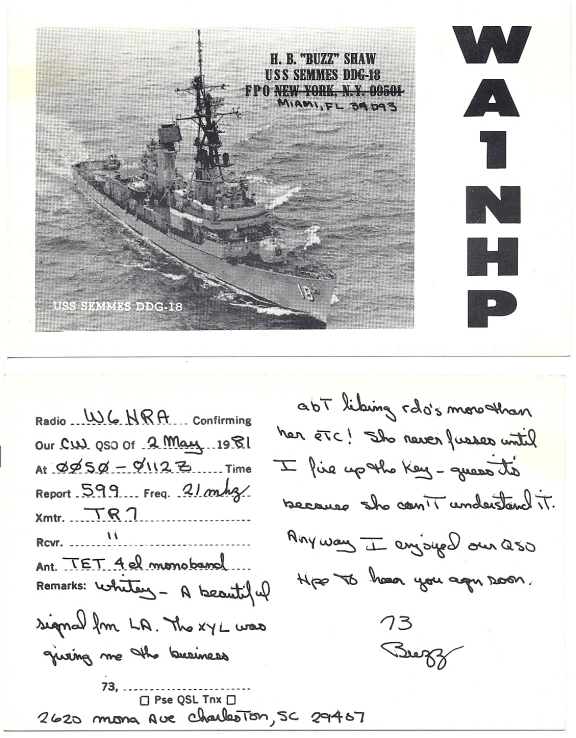 H. B. "BUZZ" SHAW
USS SEMMES DDG-18
FPO NEW YORK, N.Y. 09501
MIAMI, FL 34093
WA1NHP
18
USS SEMMES DDG-18
Radio W6NRA Confirming
Our CW QSO Of 2 May 1981
At 0050-0112Z Time
Report 599 Freq. 21 mhz
Xmtr. TR7
Rcvr. "
Ant. TET 4el monoband
Remarks: Whitey - A beautiful
signal fm LA. The XYL was
giving me the business
73,
Pse QSL Tnx
2620 Mona Ave Charleston, SC 29407
abT liking rdo's more than
her eTC! She never fusses until
I fire up the key - guess its
because she can'T understand it.
Anyway I enjoyed our QSO
Hpe To hear you agn soon.
73
Buzz